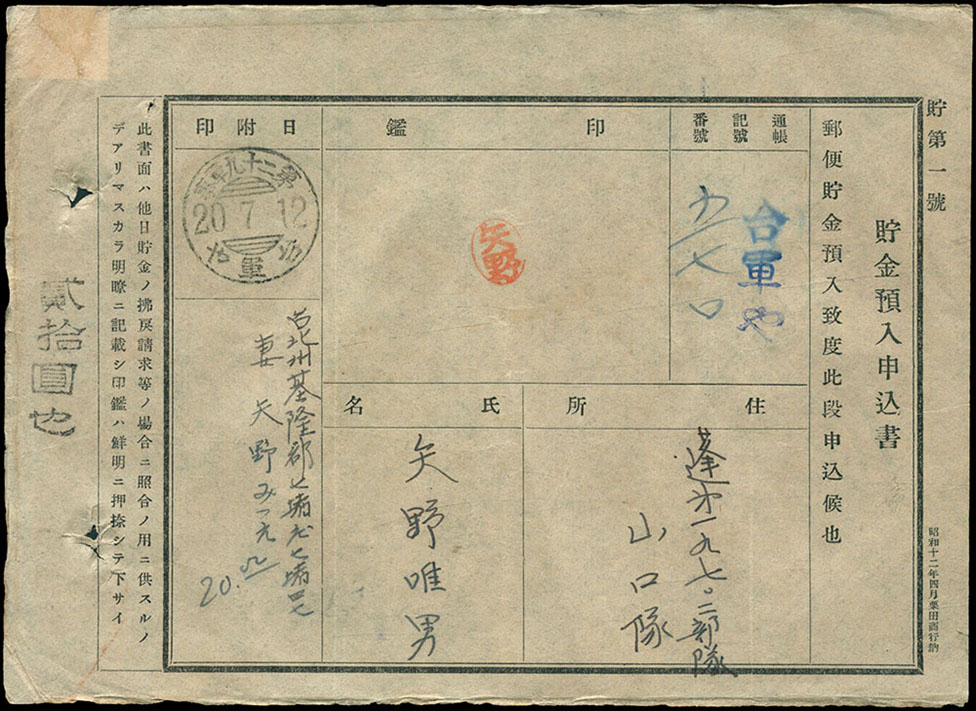 貯第一號
貯金預入申込書
昭和十二年四月栗田商行納
郵便貯金預入致度此段申込候也
通帳
記號
番號
台軍や
印鑑
矢野
日附印
20 7 12
住所
蓬第一九七〇二部隊
山口隊
氏名
矢野唯男
妻 矢野みつ
20.
此書面ハ他日貯金ノ拂戻請求等ノ場合ニ照合ノ用ニ供スルノ
デアリマスカラ明瞭ニ記載シ印鑑ハ鮮明ニ押捺シテ下サイ
貳拾圓也